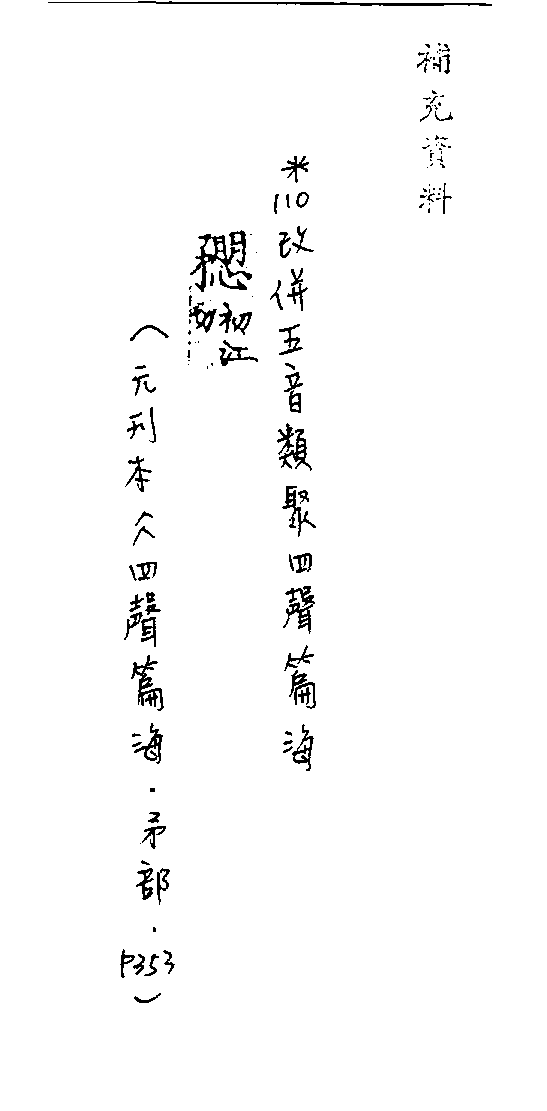 補充資料
*110改併五音類聚四聲篇海
初江
切
（元刊本《四聲篇海．矛部．P353）